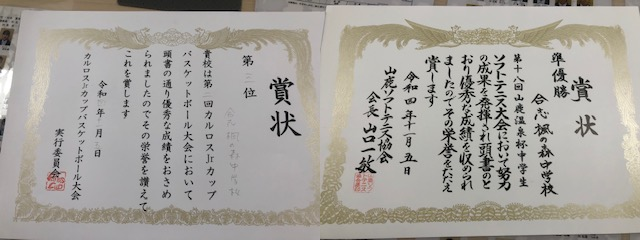 賞状
第三位
楓の森中学校
貴校は第 回カルロスJrカップ
バスケットボール大会において
頭書の通り優秀な成績をおさめ
られましたのでその栄誉を讃えて
これを賞します
令和 年 月 日
カルロスJrカップバスケットボール大会
実行委員会
賞状
準優勝
合志楓の森中学校
第十八回山鹿温泉杯中学生
ソフトテニス大会において努力
の成果を発揮され頭書のと
おり優秀な成績を収められ
ましたのでその栄誉をたたえ
賞します
令和四年十一月五日
山鹿ソフトテニス協会
会長 山口一敏